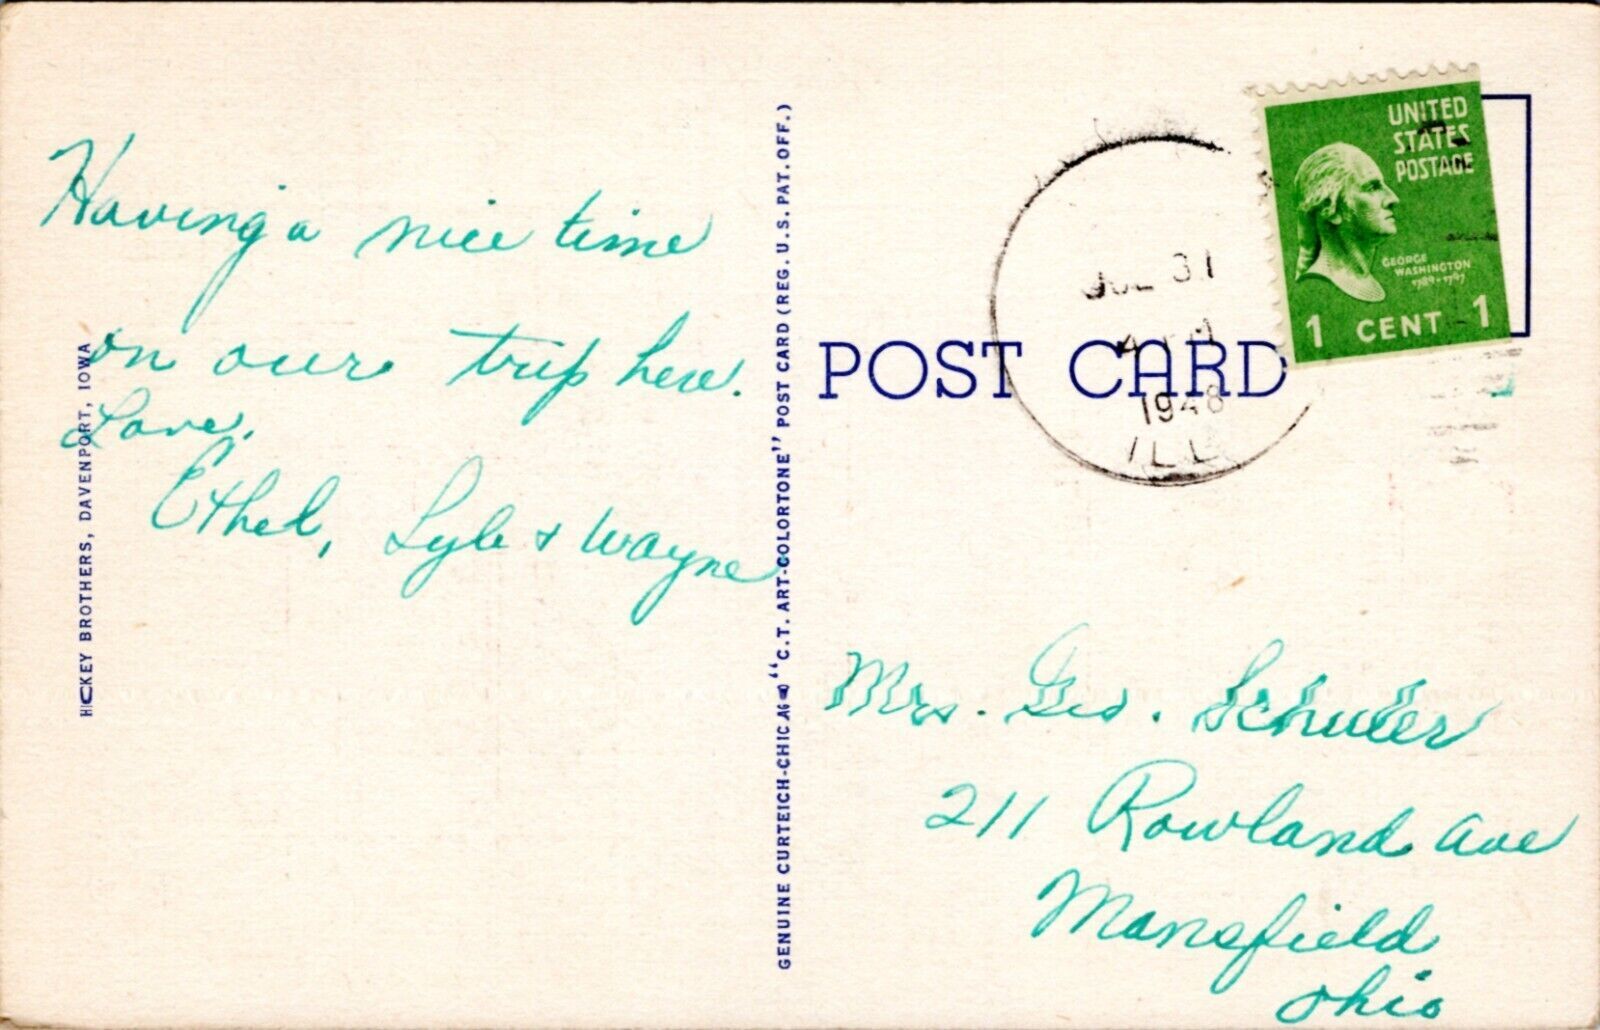 Having a nice time
on our trip here.
Love.
Ethel, Lyle + Wayne
HICKEY BROTHERS, DAVENPORT, IOWA
GENUINE CURTEICH-CHICAGO "C.T. ART-COLORTONE" POST CARD (REG. U.S. PAT. OFF.)
POST CARD
JUL 31
1948
ILL
UNITED
STATES
POSTAGE
GEORGE
WASHINGTON
1789-1797
1 CENT 1
Mrs. Geo. Schuler
211 Rowland Ave
Mansfield
Ohio